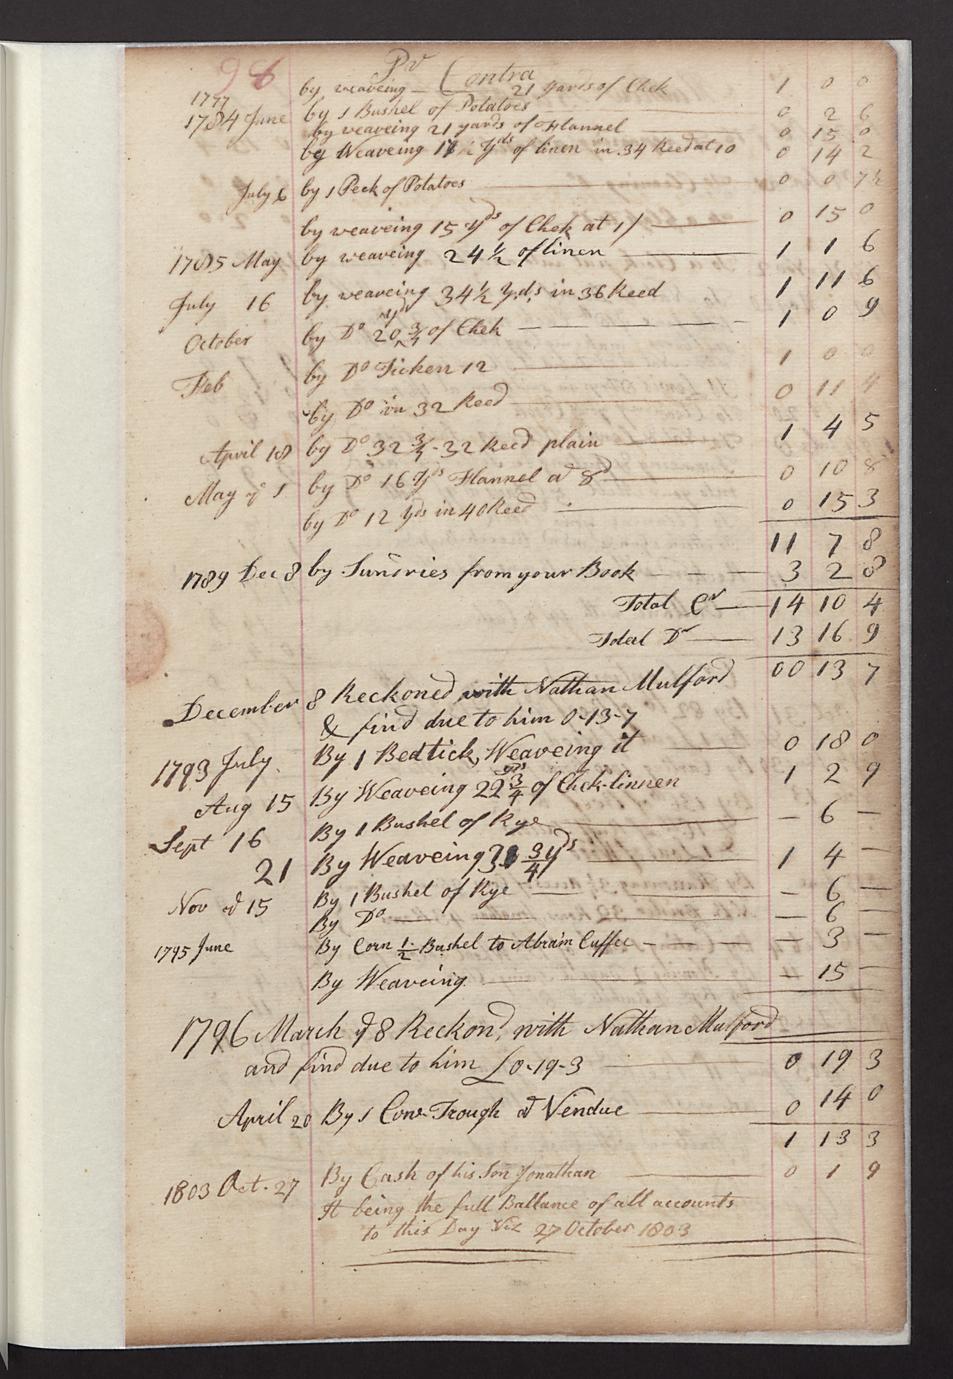 98
Pr Contra
1777 by weaveing 21 yards of Chek 1 0 0
1784 June by 1 Bushel of Potatoes 0 2 6
by weaveing 21 yards of Flannel 0 15 0
by Weaveing 17 yds of linen in 34 Reed at 10 0 14 2
July 6 by 1 Peck of Potatoes 0 0 7½
by weaveing 15 Yds of Chek at 1/ 0 15 0
1785 May by weaveing 24½ of linen 1 1 6
July 16 by weaveing 34½ Yds in 36 Reed 1 11 6
October by Do 20¾ yds of Chek 1 0 9
Feb by Do Ticken 12 1 0 0
by Do in 32 Reed 0 11 4
April 18 by Do 32¾ - 32 Reed plain 1 4 5
May ye 1 by Do 16 Yds Flannel at 8d 0 10 8
by Do 12 Yds in 40 Reed 0 15 3
11 7 8
1789 Dec 8 by Sundries from your Book 3 2 8
Total Cr 14 10 4
Total Dr 13 16 9
00 13 7
December 8 Reckoned with Nathan Mulford
& find due to him 0-13-7
1793 July By 1 Bedtick Weaveing it 0 18 0
Aug 15 By Weaveing 22¾ yds of Chek linnen 1 2 9
Sept 16 By 1 Bushel of Rye — 6 —
21 By Weaveing ¾ yds 1 4 —
Nov ye 15 By 1 Bushel of Rye — 6 —
By Do — 6 —
1795 June By Corn ½ Bushel to Abraim Cuffee — 3 —
By Weaveing — 15 —
1796 March ye 8 Reckond with Nathan Mulford
and find due to him £0-19-3 0 19 3
April 20 By 1 Cow Trough at Vendue 0 14 0
1 13 3
1803 Oct. 27 By Cash of his Son Jonathan 0 1 9
It being the full Ballance of all accounts
to this Day Viz 27 October 1803